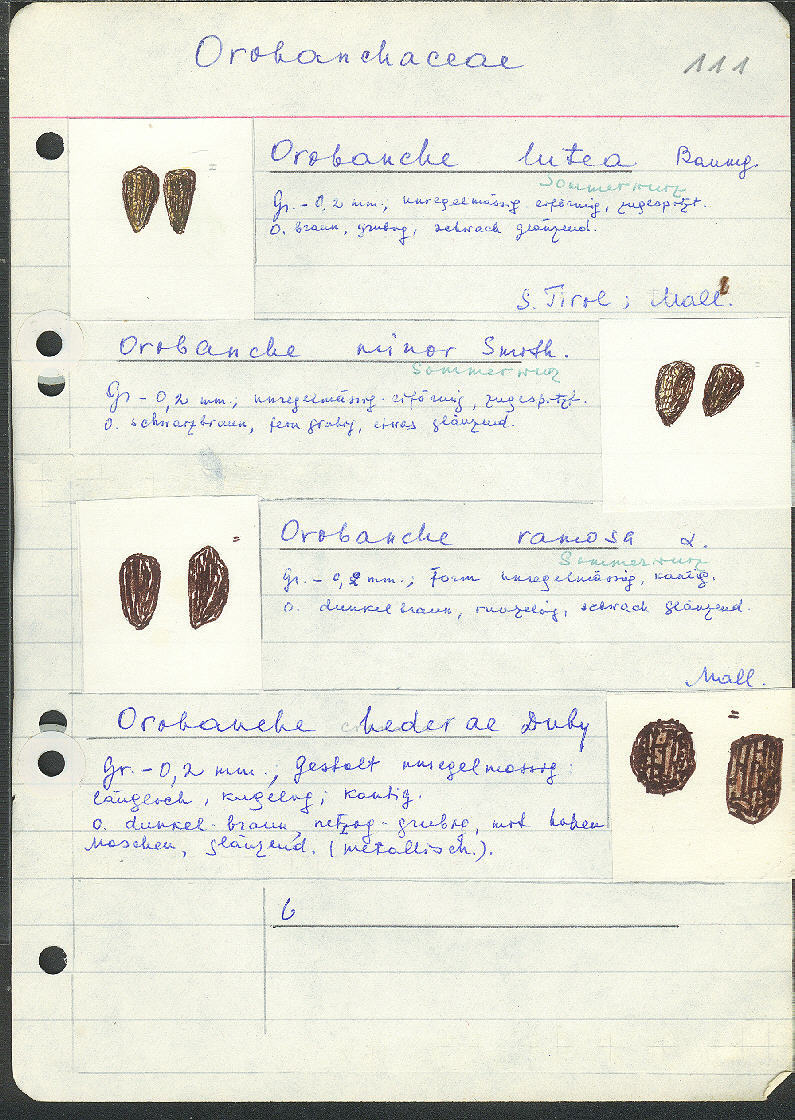 Orobanchaceae
111
Orobanche lutea Baumg.
Sommerwurz
Gr. - 0,2 mm., unregelmässig eiförmig, zugespitzt.
O. braun, grubig, schwach glänzend.
S. Tirol; Mall.
Orobanche minor Smith.
Sommerwurz
Gr - 0,2 mm.; unregelmässig-eiförmig, zugespitzt.
O. schwarzbraun, fein grubig, etwas glänzend.
Orobanche ramosa L.
Sommerwurz
Gr. - 0,2 mm.; Form unregelmässig, kantig.
O. dunkelbraun, runzelig, schwach glänzend.
Mall.
Orobanche hederae Duby
Gr. - 0,2 mm., Gestalt unregelmässig:
länglich, kugelig; kantig.
O. dunkel-braun, netzig-grubig, mit hohen
Maschen, glänzend. (metallisch.).
6